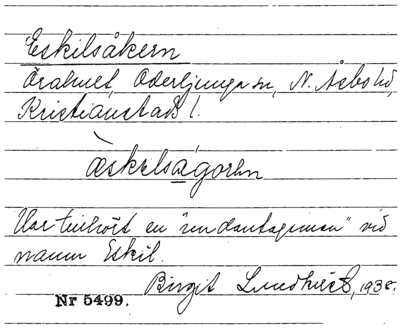 Eskilsåkern
Örahult, Oderljunga sn, N. Åsbo hd,
Kristianstads l.
æskelsagorn
Har tillhört en "undantagsman" vid
namn Eskil.
Birgit Lundqvist, 1938.
Nr 5499.